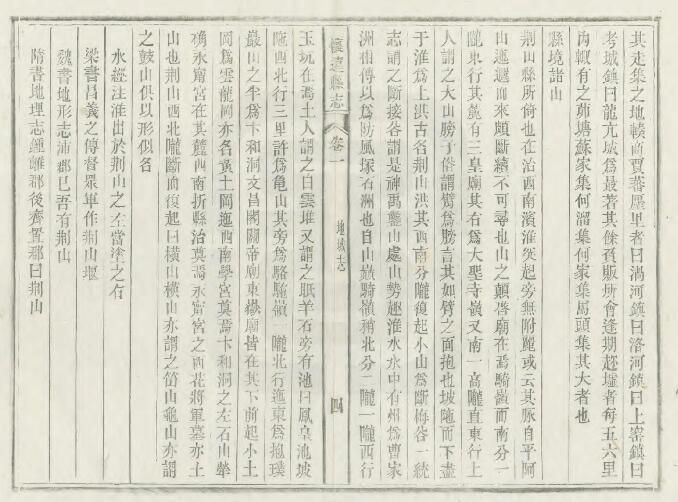 其走集之地轅而賈蕃麗里者曰渦河鎮曰洛河鎮曰上窑鎮曰
考城鎮曰龍亢城爲最著其餘貿販所會逢期趂墟者每五六里
内輒有之茆塘蘇家集何溜集何家集馬頭集其大者也
縣境諸山
荆山縣所倚也在治西南濱淮突起旁無附麗或云其脉自平阿
山迤邐而來頗斷續不可尋也山之顛啓廟在焉騎嶺而南分一
隴東行其麓有三皇廟其右爲大聖寺嶺又南一高隴直東行上
人謂之大山膀子俗謂臂爲膀言其如臂之面抱也坡陁而下盡
于淮爲上洪古名荆山洪其西南分隴復起小山爲斷梅谷一統
志謂之斷接谷謂是神禹鑿山處山勢趂淮水水中有州爲曹家
洲相傳以爲防風塚石洲也自山嶽騎嶺稍北分二隴一隴西行
懷遠縣志
卷一
地域志
四
玉坑在焉土人謂之白雲堆又謂之眠羊石旁有池曰鳳皇池坡
陁西北行三里許爲龟山其旁爲駱駝嶺一隴北行迤東爲抱璞
巖山之半爲卞和洞文昌閣關帝廟東嶽廟皆在其下前起小土
岡爲雲龍岡亦名黃土岡迤西南學宫奠焉卞和洞之左石山犖
确永甯宮在其麓西南折縣治奠焉永甯宮之西花將軍墓亦土
山也荆山西北隴斷而復起曰橫山橫山亦謂之笛山龜山亦謂
之鼓山俱以形似名
水經注淮出於荆山之左當塗之右
梁書昌義之傳督眾軍作荆山堰
魏書地形志沛郡已吾有荆山
隋書地理志鍾離郡後齊置郡曰荆山